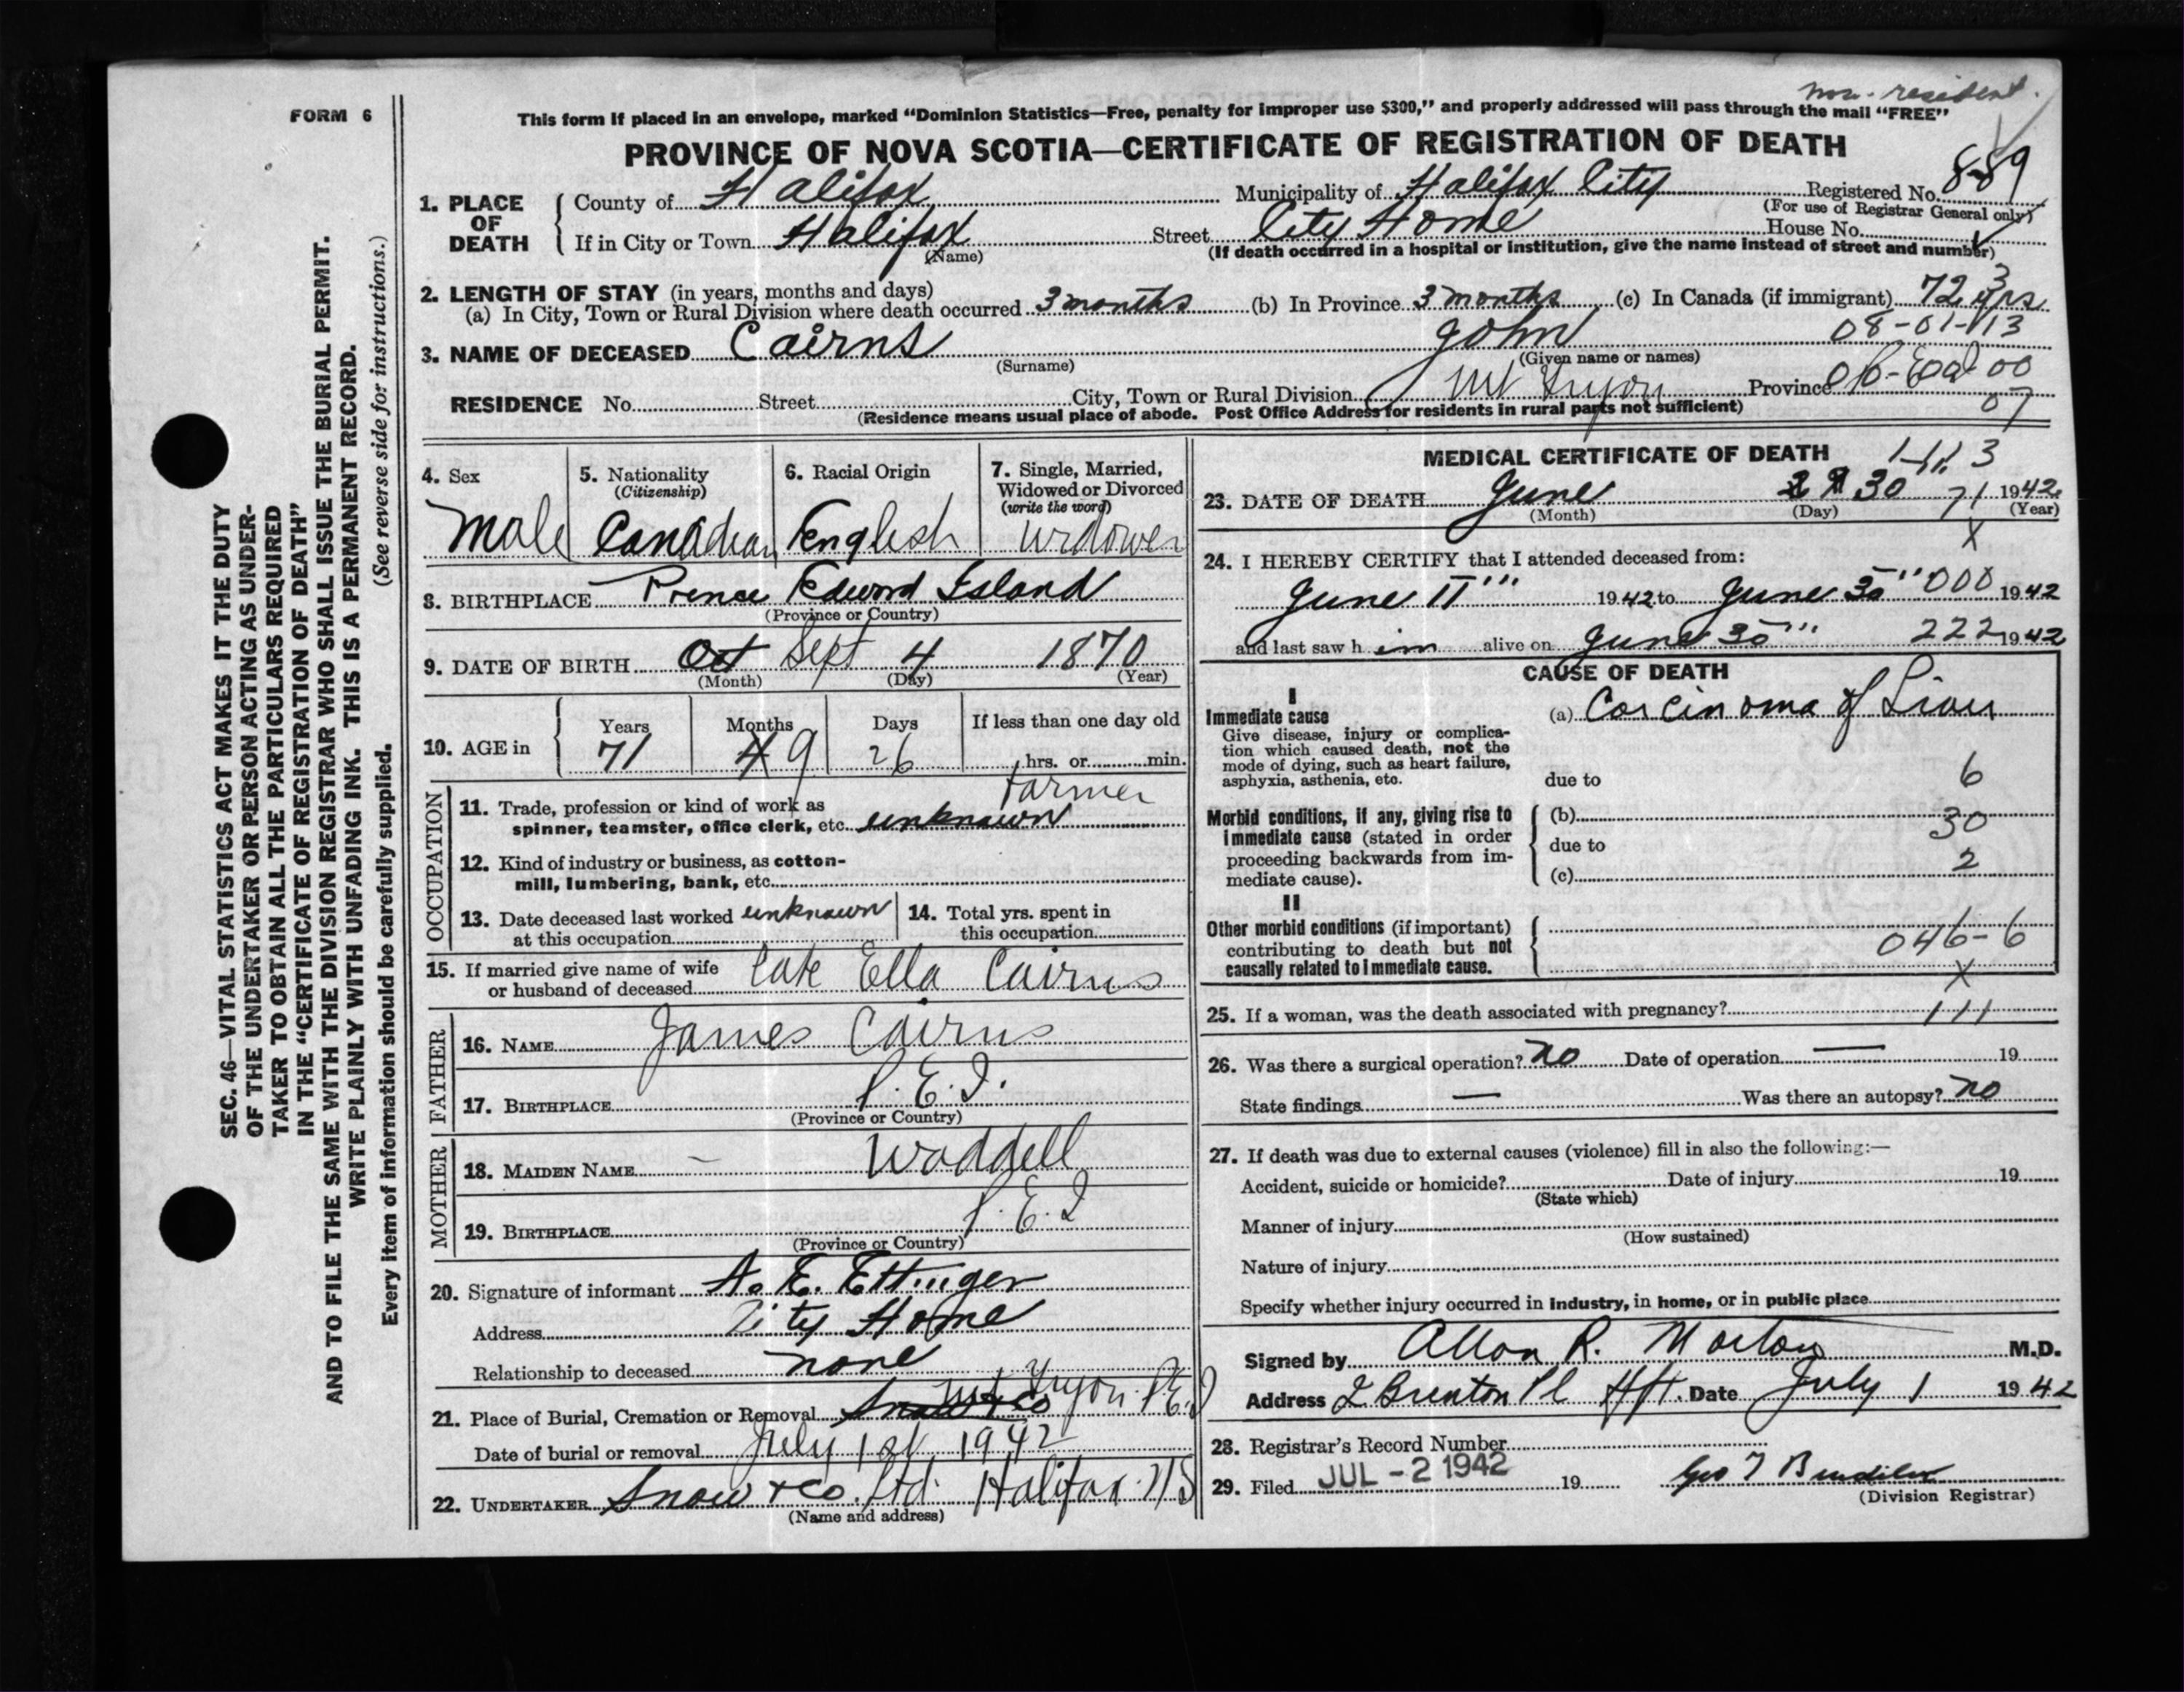 non-resident.
FORM 6
This form if placed in an envelope, marked “Dominion Statistics—Free, penalty for improper use $300,” and properly addressed will pass through the mail “FREE”
PROVINCE OF NOVA SCOTIA—CERTIFICATE OF REGISTRATION OF DEATH
1. PLACE OF DEATH County of Halifax Municipality of Halifax City Registered No. 889
(For use of Registrar General only)
If in City or Town Halifax Street City Home House No.
(Name) (If death occurred in a hospital or institution, give the name instead of street and number)
2. LENGTH OF STAY (in years, months and days)
(a) In City, Town or Rural Division where death occurred 3 months (b) In Province 3 months (c) In Canada (if immigrant) 72 yrs
3
08-01-113
3. NAME OF DECEASED Cairns John
(Surname) (Given name or names)
RESIDENCE No. Street City, Town or Rural Division Mt Tryon Province 00
07
(Residence means usual place of abode. Post Office Address for residents in rural parts not sufficient)
4. Sex
Male
5. Nationality
(Citizenship)
Canadian
6. Racial Origin
English
7. Single, Married,
Widowed or Divorced
(write the word)
Widower
8. BIRTHPLACE Prince Edward Island
(Province or Country)
9. DATE OF BIRTH Oct Sept 4 1870
(Month) (Day) (Year)
10. AGE in Years Months Days If less than one day old
71 4 9 26 hrs. or min.
OCCUPATION
Farmer
11. Trade, profession or kind of work as
spinner, teamster, office clerk, etc. unknown
12. Kind of industry or business, as cotton-
mill, lumbering, bank, etc.
13. Date deceased last worked unknown
at this occupation
14. Total yrs. spent in
this occupation
15. If married give name of wife
or husband of deceased late Ella Cairns
FATHER
16. NAME James Cairns
17. BIRTHPLACE P.E.I.
(Province or Country)
MOTHER
18. MAIDEN NAME — Waddell
19. BIRTHPLACE P.E.I
(Province or Country)
20. Signature of informant A. E. Ettinger
Address City Home
Relationship to deceased none
21. Place of Burial, Cremation or Removal Snow & Co Mt Tryon P.E.I
Date of burial or removal July 1st 1942
22. UNDERTAKER Snow & Co. Ltd. Halifax NS
(Name and address)
MEDICAL CERTIFICATE OF DEATH
23. DATE OF DEATH June 30 71 1942
(Month) (Day) (Year)
X
24. I HEREBY CERTIFY that I attended deceased from:
June 11 1942 to June 30 000 1942
and last saw him alive on June 30 222 1942
CAUSE OF DEATH
I
Immediate cause
Give disease, injury or complica-
tion which caused death, not the
mode of dying, such as heart failure,
asphyxia, asthenia, etc.
(a) Carcinoma of Liver
due to
6
Morbid conditions, if any, giving rise to
immediate cause (stated in order
proceeding backwards from im-
mediate cause).
(b)
30
due to
(c)
2
II
Other morbid conditions (if important)
contributing to death but not
causally related to immediate cause.
046-6
X
25. If a woman, was the death associated with pregnancy? 111
26. Was there a surgical operation? no Date of operation — 19
State findings — Was there an autopsy? no
27. If death was due to external causes (violence) fill in also the following:—
Accident, suicide or homicide? Date of injury 19
(State which)
Manner of injury
(How sustained)
Nature of injury
Specify whether injury occurred in industry, in home, or in public place
Signed by Allan R. Morton M.D.
Address 2 Brenton Pl Hfx. Date July 1 1942
28. Registrar's Record Number
29. Filed JUL -2 1942 19
(Division Registrar)
SEC. 46—VITAL STATISTICS ACT MAKES IT THE DUTY
OF THE UNDERTAKER OR PERSON ACTING AS UNDER-
TAKER TO OBTAIN ALL THE PARTICULARS REQUIRED
IN THE “CERTIFICATE OF REGISTRATION OF DEATH”
AND TO FILE THE SAME WITH THE DIVISION REGISTRAR WHO SHALL ISSUE THE BURIAL PERMIT.
WRITE PLAINLY WITH UNFADING INK. THIS IS A PERMANENT RECORD.
(See reverse side for instructions.)
Every item of information should be carefully supplied.